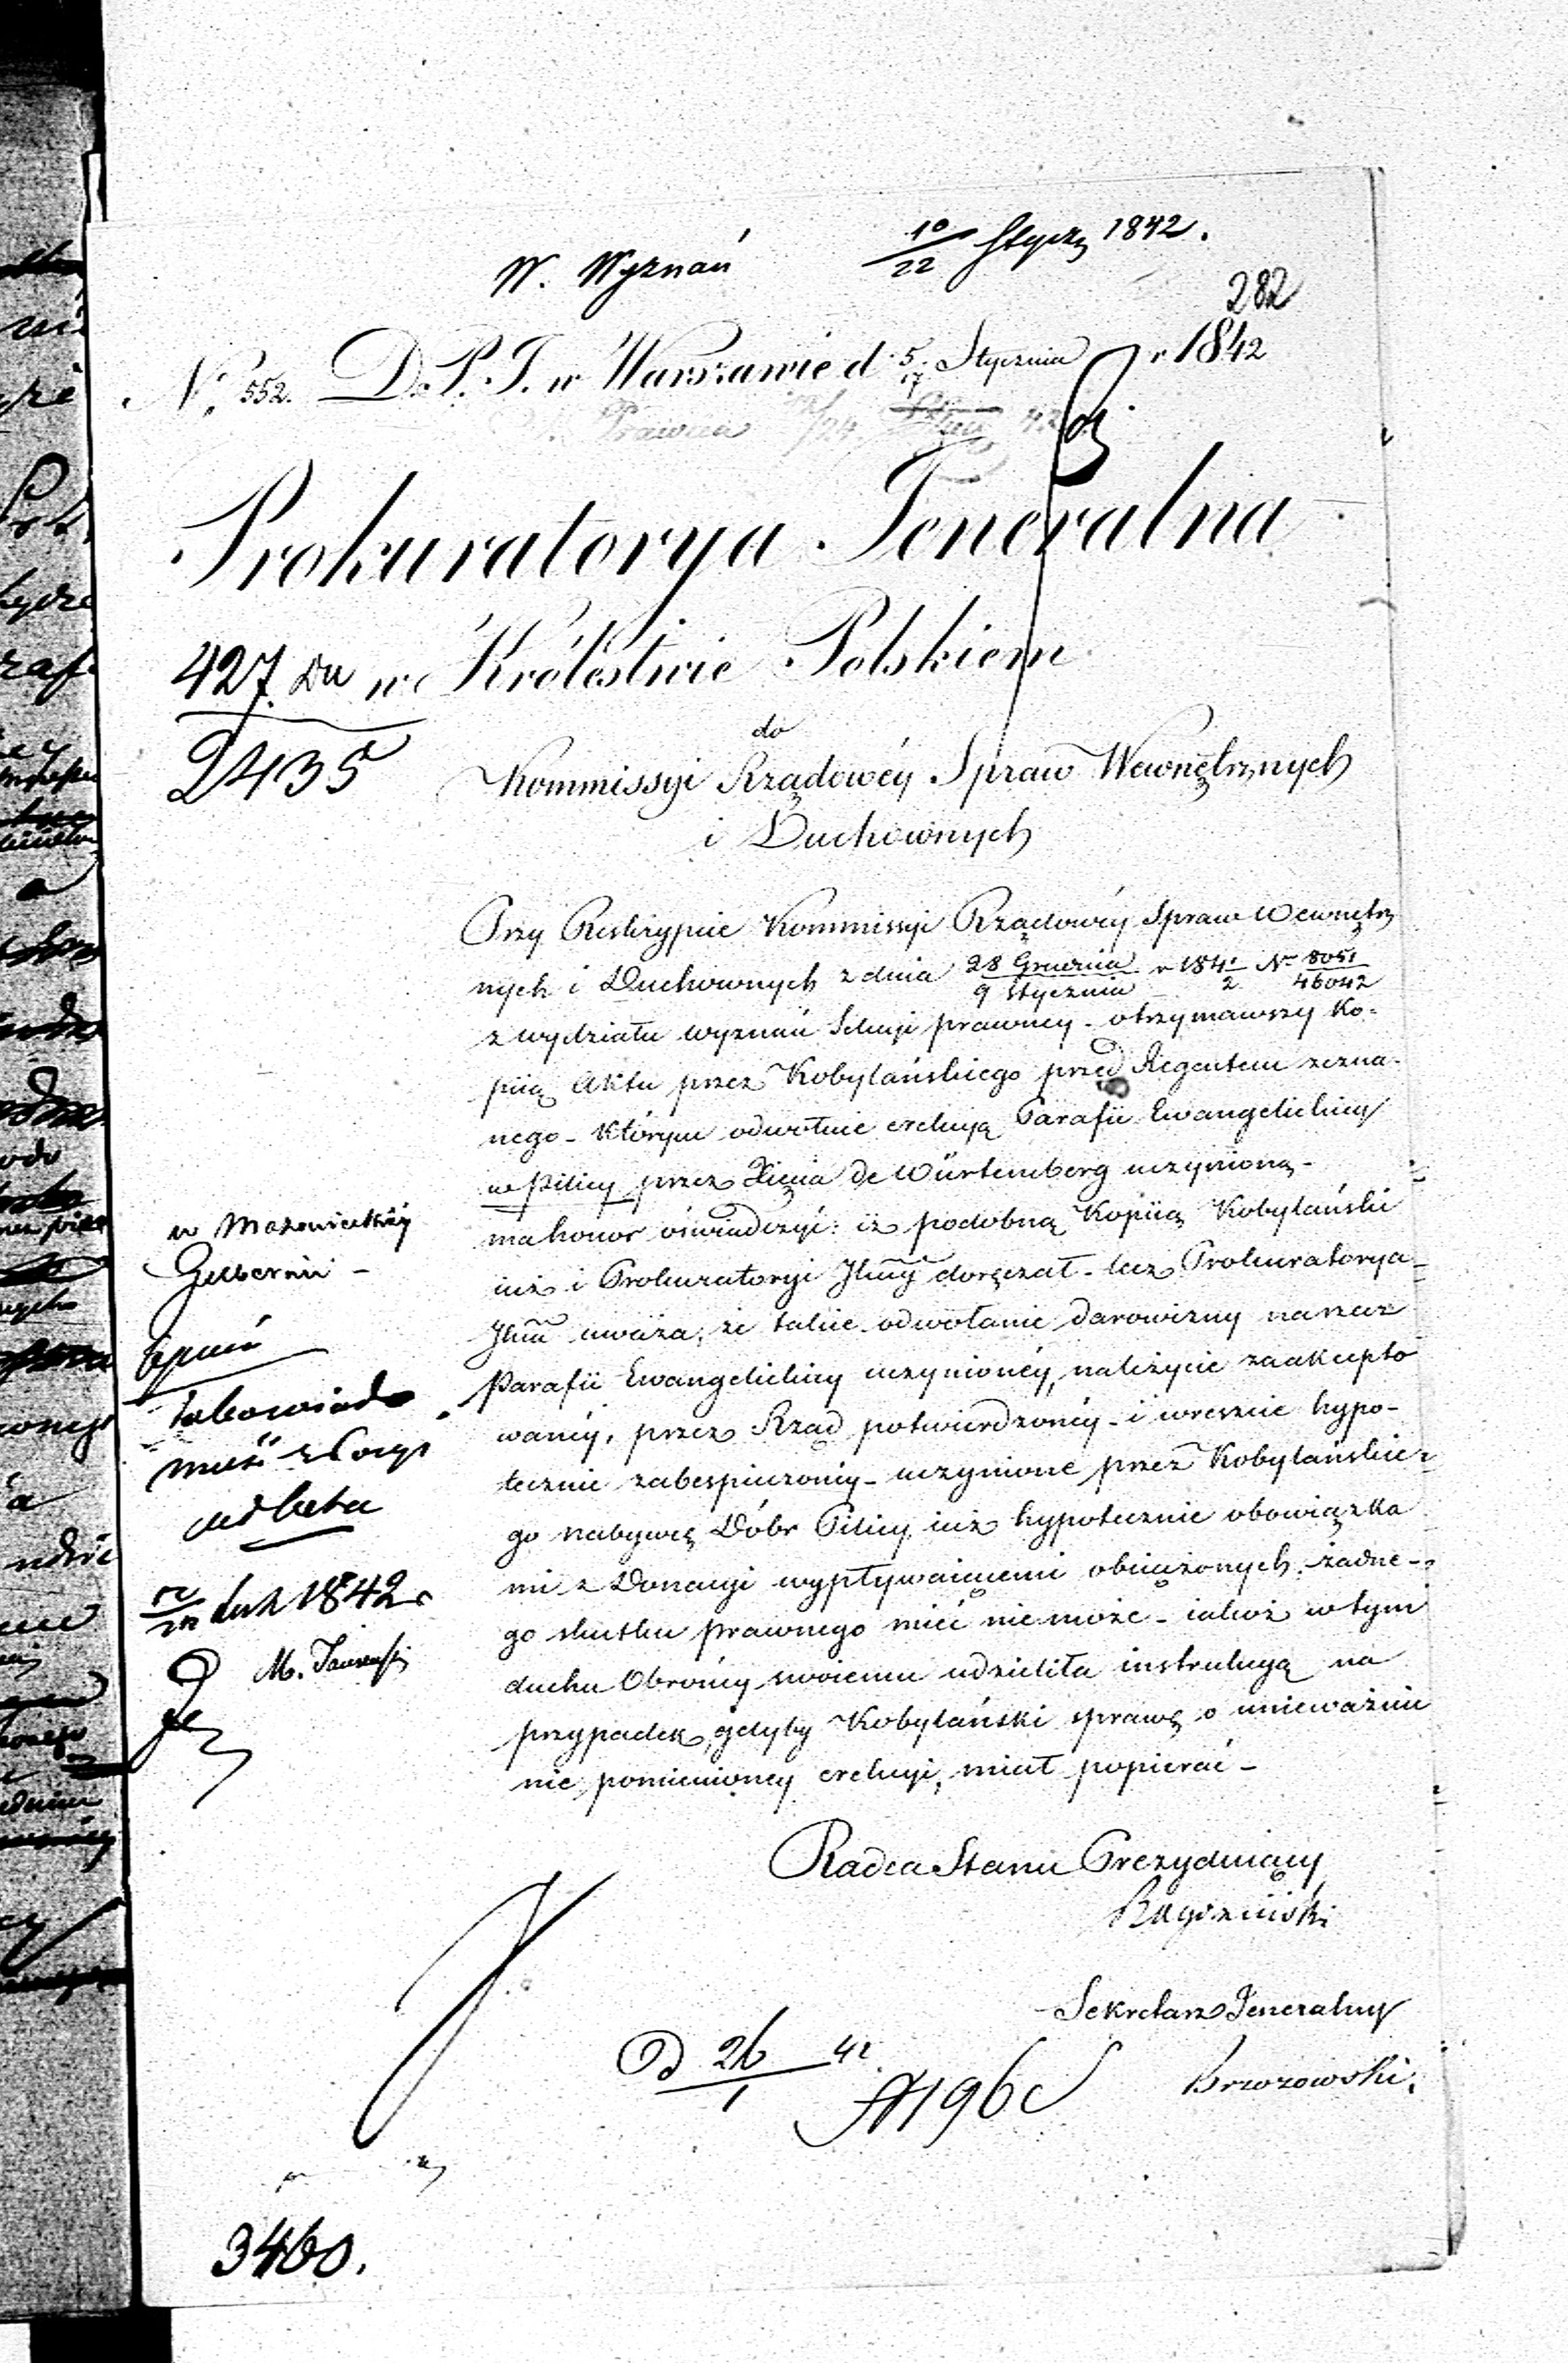 W. Wyznań 10/22 Stycz 1842.
282
No. 552. D. P. J. w Warszawie d. 5/17 Stycznia r 1842
Prawna /24. 42
Prokuratorya Jeneralna
427. Du w Królestwie Polskiem
2435
do
Kommissyi Rządowéy Spraw Wewnętrznych
i Duchownych
Przy Reskrypcie Kommissyi Rządowéy Spraw Wewnętrz
nych i Duchownych z dnia 28 Grudnia/9 Stycznia r 184 1/2 No 8051/46042
z wydziału wyznań Sekcyi prawney - otrzymawszy Ko-
piią Aktu przez Kobylańskiego przed Regentem zezna-
nego - którym odwołuie erekcyą Parafii Ewangelickiey
w Pilicy przez Xięcia de Würtemberg uczynioną -
ma honor oświadczyć: iż podobną Kopiią Kobylański
iuż i Prokuratoryi Jlney doręczał - lecz Prokuratorya
Jlna uważa, że takie odwołanie darowizny na rzecz
Parafii Ewangelickiey uczynionéy, należycie zaakcepto
wanéy, przez Rząd potwierdzonéy - i wreszcie hypo-
tecznie zabespieczonéy - uczynione przez Kobylańskie-
go nabywcę Dóbr Pilicy iuż hypotecznie obowiązka
mi z Donacyi wypływaiącemi obciążonych, żadne-
go skutku prawnego mieć nie może - iakoż w tym
duchu Obrońcy swoiemu udzieliła instrukcyą na
przypadek, gdyby Kobylański sprawę o unieważnie
nie pomienioney erekcyi, miał popierać -
w Mazowieckiéy
Gubernii -
ad acta
1842 r
Radca Stanu Prezyduiący
Sekretarz Jeneralny
Brzozowski.
26/1 42
3460.